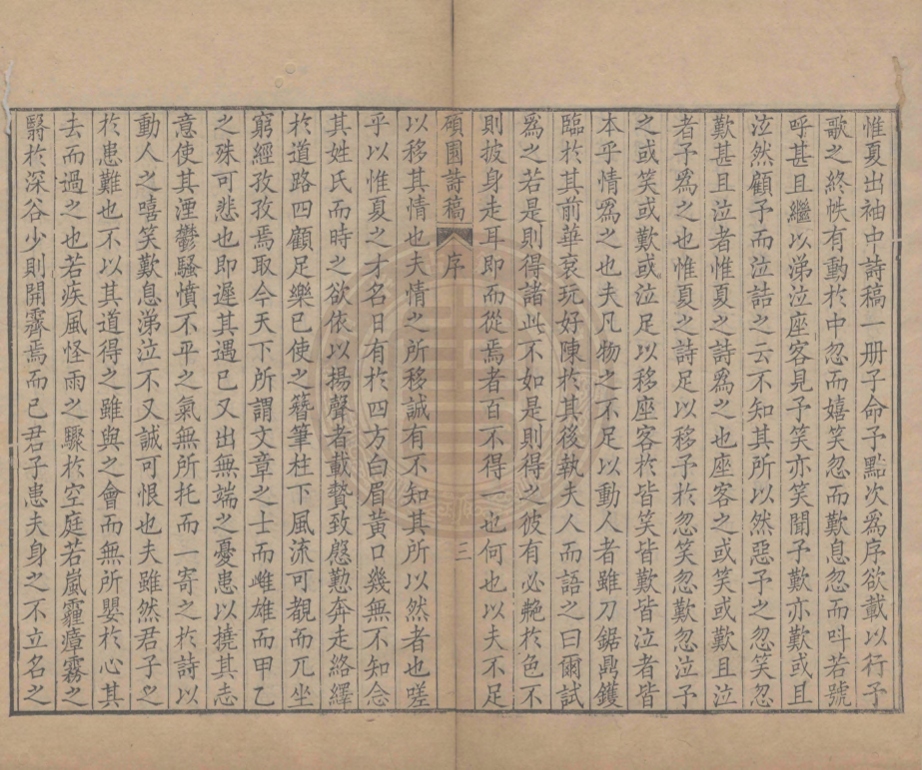 惟夏出袖中詩稿一册子命予點次爲序欲載以行予
歌之終帙有動於中忽而嬉笑忽而歎息忽而呌若號
呼甚且繼以涕泣座客見予笑亦笑聞予歎亦歎或且
泣然顧予而泣詰之云不知其所以然惡予之忽笑忽
歎甚且泣者惟夏之詩爲之也座客之或笑或歎且泣
者予爲之也惟夏之詩足以移予於忽笑忽歎忽泣予
之或笑或歎或泣足以移座客於皆笑皆歎皆泣者皆
本乎情爲之也夫凡物之不足以動人者雖刀鋸鼎鑊
臨於其前華衮玩好陳於其後執夫人而語之曰爾試
爲之若是則得諸此不如是則得之彼有必艴於色不
則披身走耳即而從焉者百不得一也何也以夫不足
碩園詩稿 序 三
以移其情也夫情之所移誠有不知其所以然者也嗟
乎以惟夏之才名日有於四方白眉黃口幾無不知念
其姓氏而時之欲依以揚聲者載贄致慇懃奔走絡繹
於道路四顧足樂已使之簪筆柱下風流可覩而兀坐
窮經孜孜焉取今天下所謂文章之士而雌雄而甲乙
之殊可悲也即遲其遇已又出無端之憂患以撓其志
意使其湮鬱騷憤不平之氣無所托而一寄之於詩以
動人之嘻笑歎息涕泣不又誠可恨也夫雖然君子之
於患難也不以其道得之雖與之會而無所嬰於心其
去而過之也若疾風怪雨之驟於空庭若嵐霾瘴霧之
翳於深谷少則開霽焉而已君子患夫身之不立名之